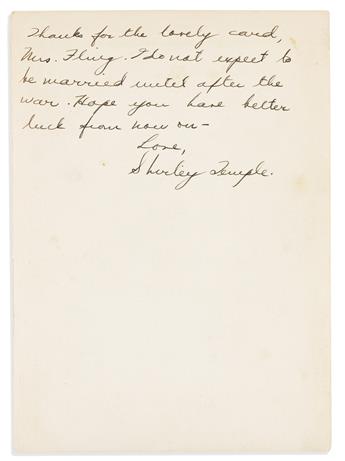 Thanks for the lovely card,
Mrs. Fling. I do not expect to
be married until after the
war. Hope you have better
luck from now on –
Love,
Shirley Temple.